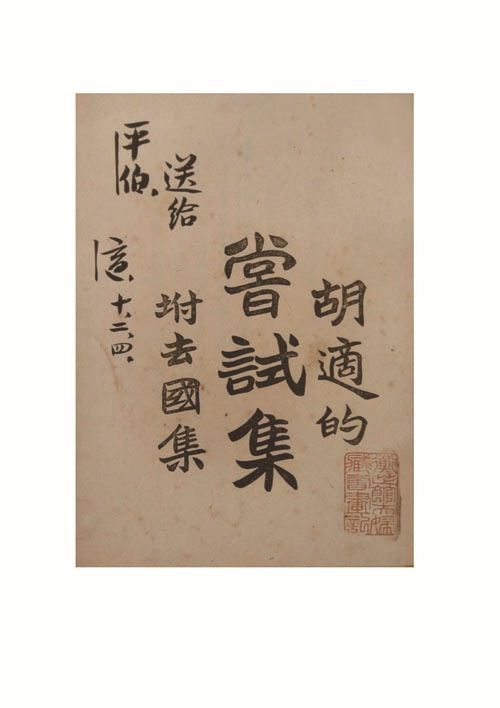 胡適的
嘗試集
坿去國集
送給
平伯.
適. 十.二.四.